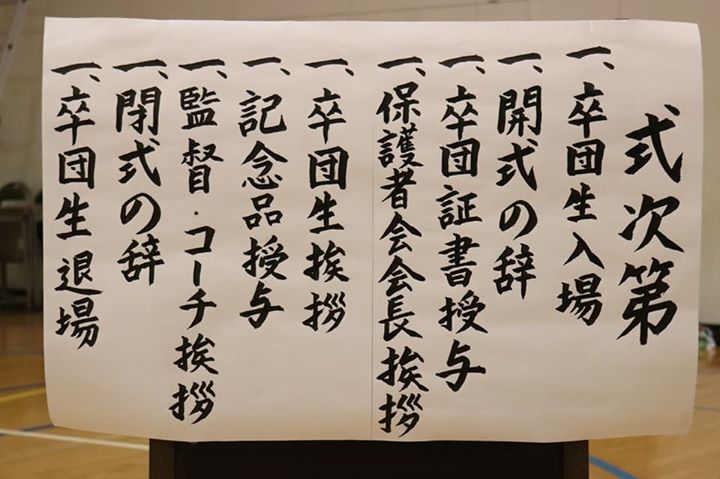 式次第
一、卒団生入場
一、開式の辞
一、卒団証書授与
一、保護者会会長挨拶
一、卒団生挨拶
一、記念品授与
一、監督・コーチ挨拶
一、閉式の辞
一、卒団生退場